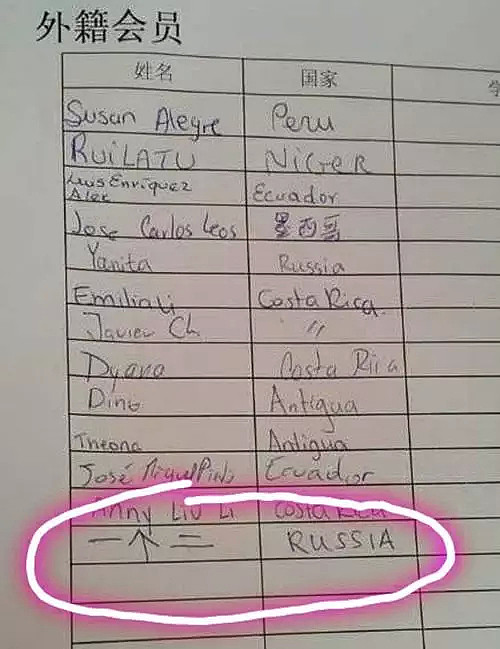 外籍会员
姓名 国家 学
Susan Alegre Peru
RUiLATU NiGeR
Luis Enriquez Ecuador
Alex
Jose Carlos Leos 墨西哥
Yanita Russia
Emilia Li Costa Rica.
Javier Ch "
Dyana Costa Rica
Dino Antigua
Theona Antigua
José Miguel Pinto Ecuador
Anny Liu Li Costa Rica
一个二 RUSSIA